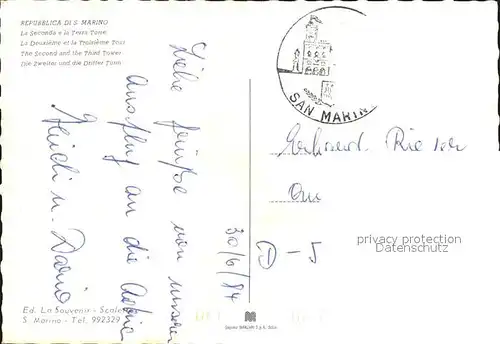 REPUBBLICA DI S. MARINO
La Seconda e la Terza Torre
La Deuxième et la Troisième Tour
The Second and the Third Tower
Die Zweiter und die Dritter Turm
SAN MARINO
Liebe Grüße von unserem
Ausflug an die Adria
Heidi u. Dario
30/6/84
Gerhard Rieser
Au
D - J
privacy protection
Datenschutz
Ed. La Souvenir -
S. Marino - Tel. 992329